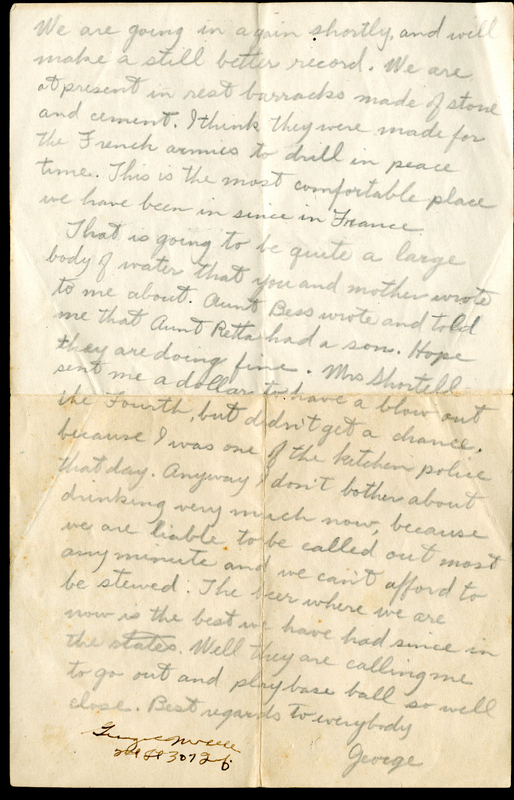 We are going in again shortly, and will
make a still better record. We are
at present in rest barracks made of stone
and cement. I think they were made for
the French armies to drill in peace
time. This is the most comfortable place
we have been in since in France
That is going to be quite a large
body of water that you and mother wrote
to me about. Aunt Bess wrote and told
me that Aunt Retta had a son. Hope
they are doing fine. Mrs Shortell
sent me a dollar to have a blow out
the Fourth, but didn't get a chance,
because I was one of the kitchen police
that day. Anyway I don't bother about
drinking very much now, because
we are liable to be called out most
any minute and we can't afford to
be stewed. The beer where we are
now is the best we have had since in
the states. Well they are calling me
to go out and play base ball so will
close. Best regards to everybody
George